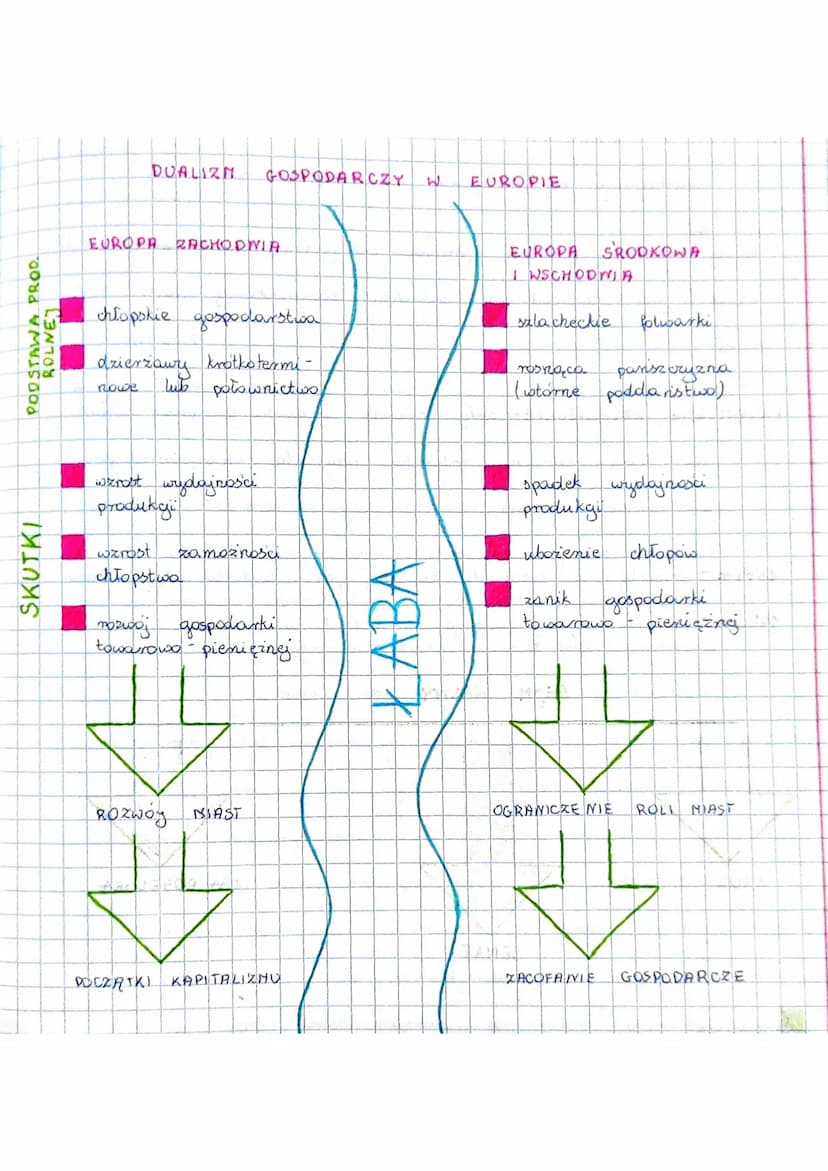 DUALIZM GOSPODARCZY W EUROPIE
EUROPA ZACHODNIA
PODSTAWA PROD.
ROLNEJ
chłopskie gospodarstwa
dzierżawy krótkotermi-
nowe lub połownictwo
SKUTKI
wzrost wydajności
produkcji
wzrost zamożności
chłopstwa
rozwój gospodarki
towarowo-pieniężnej
ROZWÓJ MIAST
POCZĄTKI KAPITALIZMU
ŁABA
EUROPA ŚRODKOWA
I WSCHODNIA
szlacheckie folwarki
rosnąca pańszczyzna
(wtórne poddaństwo)
spadek wydajności
produkcji
ubożenie chłopów
zanik gospodarki
towarowo-pieniężnej
OGRANICZENIE ROLI MIAST
ZACOFANIE GOSPODARCZE